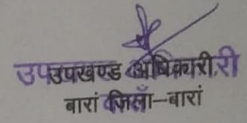 उपखण्ड अधिकारी
बारां जिला-बारां